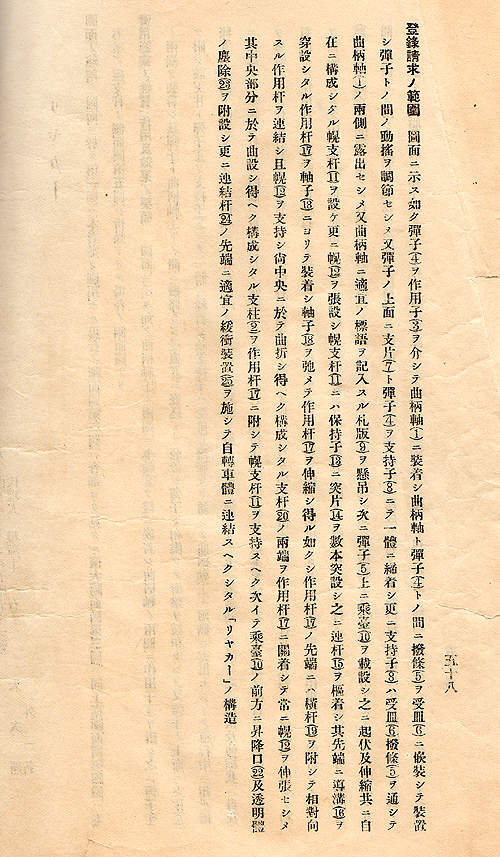 登錄請求ノ範圍　圖面ニ示ス如ク彈子④ヲ作用子③ヲ介シテ曲柄軸①ニ裝着シ曲柄軸ト彈子④トノ間ニ撥條⑤ヲ受皿⑥ニ嵌裝シテ裝置
シ彈子トノ間ノ動搖ヲ調節セシメ又彈子ノ上面ニ支片⑦ト彈子④ヲ支持子⑧ニテ一體ニ締着シ更ニ支持子⑧ハ受皿⑥撥條⑤ヲ通シテ
曲柄軸①ノ兩側ニ露出セシメ又曲柄軸ニ適宜ノ標語ヲ記入スル札版⑨ヲ懸吊シ次ニ彈子⑤上ニ乘臺⑩ヲ載設シ之ニ起伏及伸縮共ニ自
在ニ構成シタル幌支杆⑪ヲ設ケ更ニ幌⑫ヲ張設シ幌支杆⑪ニハ保持子⑬ニ突片⑭ヲ數本突設シ之ニ連杆⑮ヲ樞着シ其先端ニ導溝⑯ヲ
穿設シタル作用杆⑰ヲ軸子⑱ニヨリテ裝着シ軸子⑱ヲ弛メテ作用杆⑰ヲ伸縮シ得ル如クシ作用杆⑰ノ先端ニハ橫杆⑲ヲ附シテ相對向
スル作用杆ヲ連結シ且幌⑫ヲ支持シ尙中央ニ於テ曲折シ得ヘク構成シタル支杆⑳ノ兩端ヲ作用杆⑰ニ關着シテ常ニ幌⑫ヲ伸張セシメ
其中央部分ニ於テ曲設シ得ヘク構成シタル支柱㉑ヲ作用杆⑰ニ附シテ幌支杆⑪ヲ支持スヘク次イテ乘臺⑩ノ前方ニ昇降口㉒及透明體
ノ塵除㉓ヲ附設シ更ニ連結杆㉔ノ先端ニ適宜ノ緩衝裝置㉕ヲ施シテ自轉車體ニ連結スヘクシタル「リヤカー」ノ構造
五十八